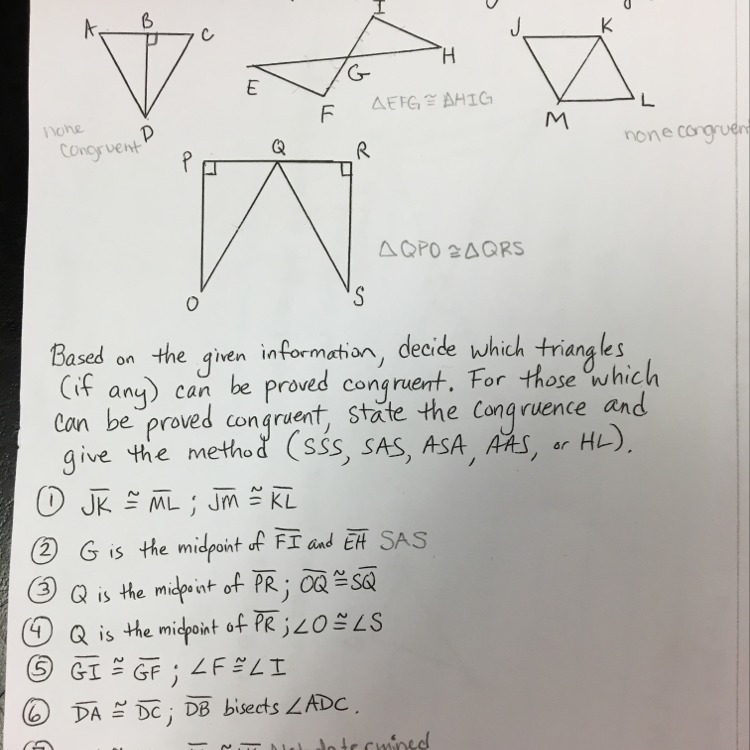 A B C
D
none
congruent
I
H
G
E
F
△EFG ≅ △HIG
J K
M L
none congruent
P Q R
O S
△QPO ≅ △QRS
Based on the given information, decide which triangles
(if any) can be proved congruent. For those which
can be proved congruent, state the congruence and
give the method (SSS, SAS, ASA, AAS, or HL).
① J̅K̅ ≅ M̅L̅ ; J̅M̅ ≅ K̅L̅
② G is the midpoint of F̅I̅ and E̅H̅ SAS
③ Q is the midpoint of P̅R̅ ; O̅Q̅ ≅ S̅Q̅
④ Q is the midpoint of P̅R̅ ; ∠O ≅ ∠S
⑤ G̅I̅ ≅ G̅F̅ ; ∠F ≅ ∠I
⑥ D̅A̅ ≅ D̅C̅ ; D̅B̅ bisects ∠ADC.
Not determined